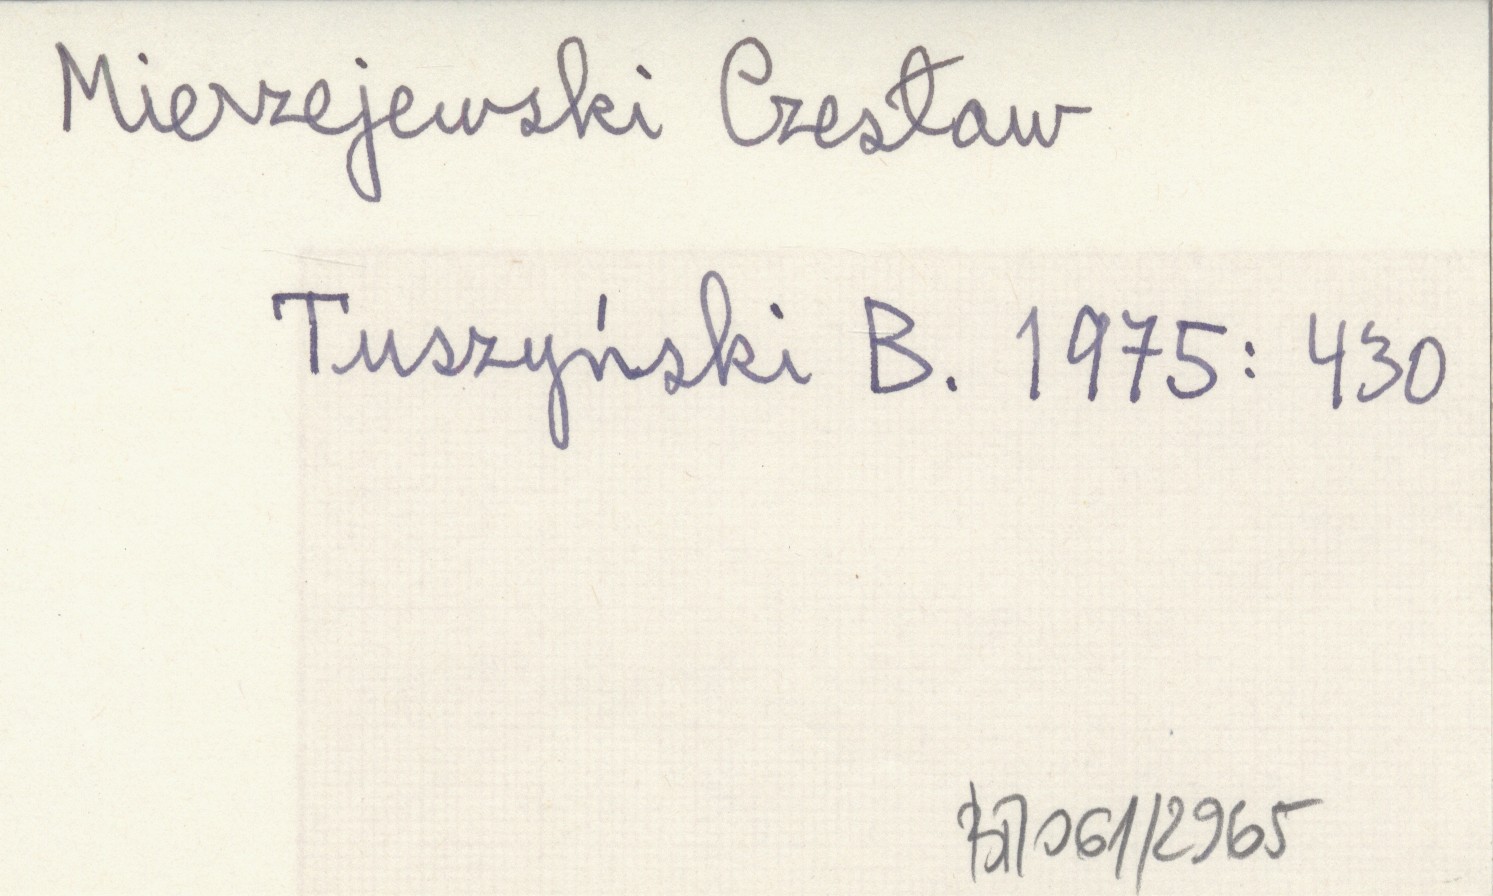 Mierzejewski Czesław
Tuszyński B. 1975: 430
061/2965